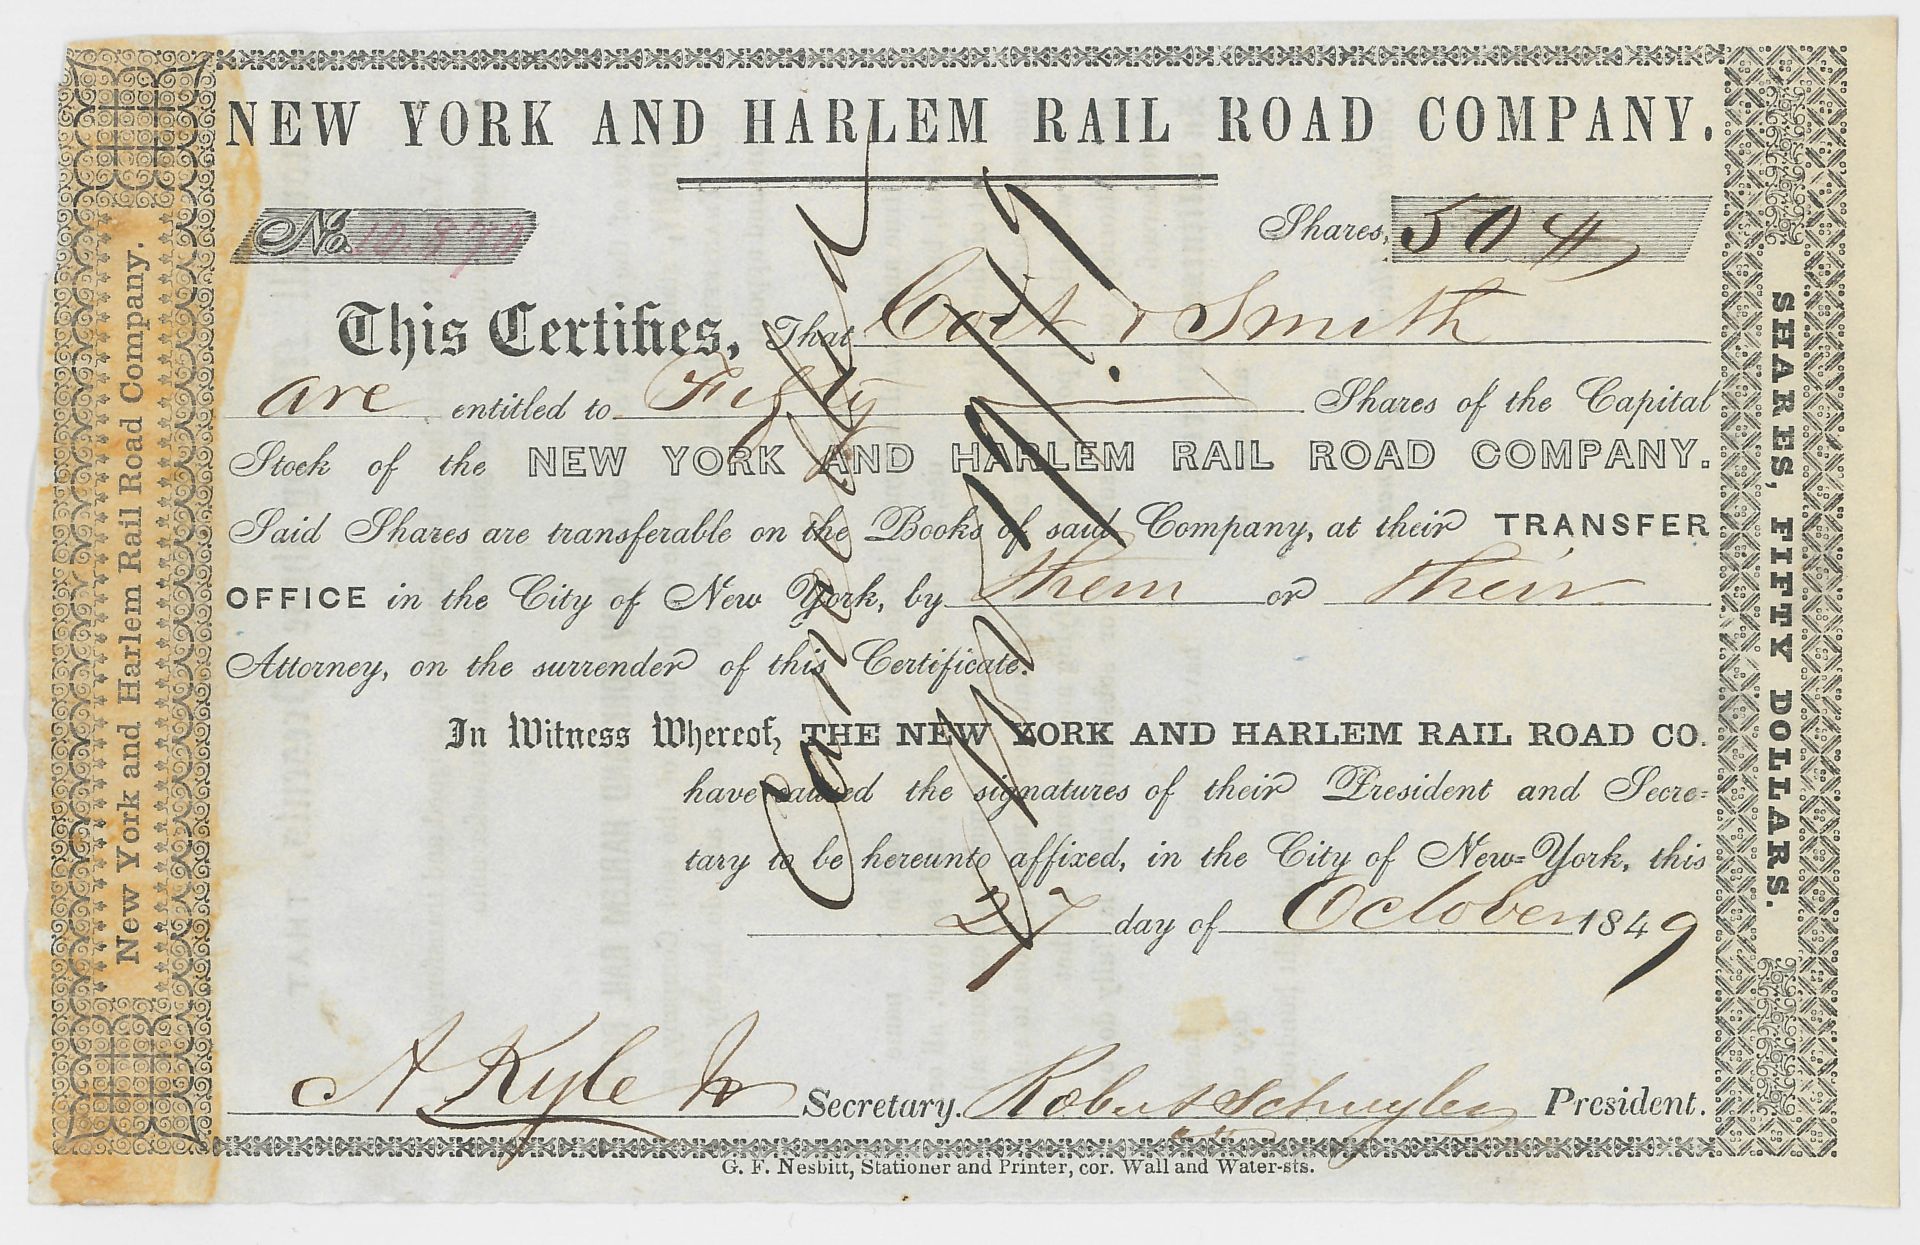 NEW YORK AND HARLEM RAIL ROAD COMPANY.
No. 10.870
Shares, 50
This Certifies, That Coit & Smith
are entitled to Fifty Shares of the Capital
Stock of the NEW YORK AND HARLEM RAIL ROAD COMPANY.
Said Shares are transferable on the Books of said Company, at their TRANSFER
OFFICE in the City of New York, by them or their
Attorney, on the surrender of this Certificate.
In Witness Whereof, THE NEW YORK AND HARLEM RAIL ROAD CO.
have caused the signatures of their President and Secre=
tary to be hereunto affixed, in the City of New=York, this
27 day of October 1849
A Kyle Jr Secretary. Robert Schuyler President.
G. F. Nesbitt, Stationer and Printer, cor. Wall and Water-sts.
New York and Harlem Rail Road Company.
SHARES, FIFTY DOLLARS.
Cancelled